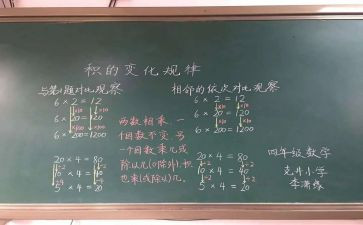 积的变化规律
与第1题对比观察
6 × 2 = 12
×10 ×10
6 × 20 = 120
×100 ×100
6 × 200 = 1200
20 × 4 = 80
÷2 ÷2
10 × 4 = 40
÷4 ÷4
5 × 4 = 20
两数相乘,一
个因数不变,另
一个因数乘几或
除以几(0除外),积
也乘(或除以)几。
相邻的依次对比观察
6 × 2 = 12
×10 ×10
6 × 20 = 120
×10 ×10
6 × 200 = 1200
20 × 4 = 80
÷2 ÷2
10 × 4 = 40
÷2 ÷2
5 × 4 = 20
四年级数学
井小学
李